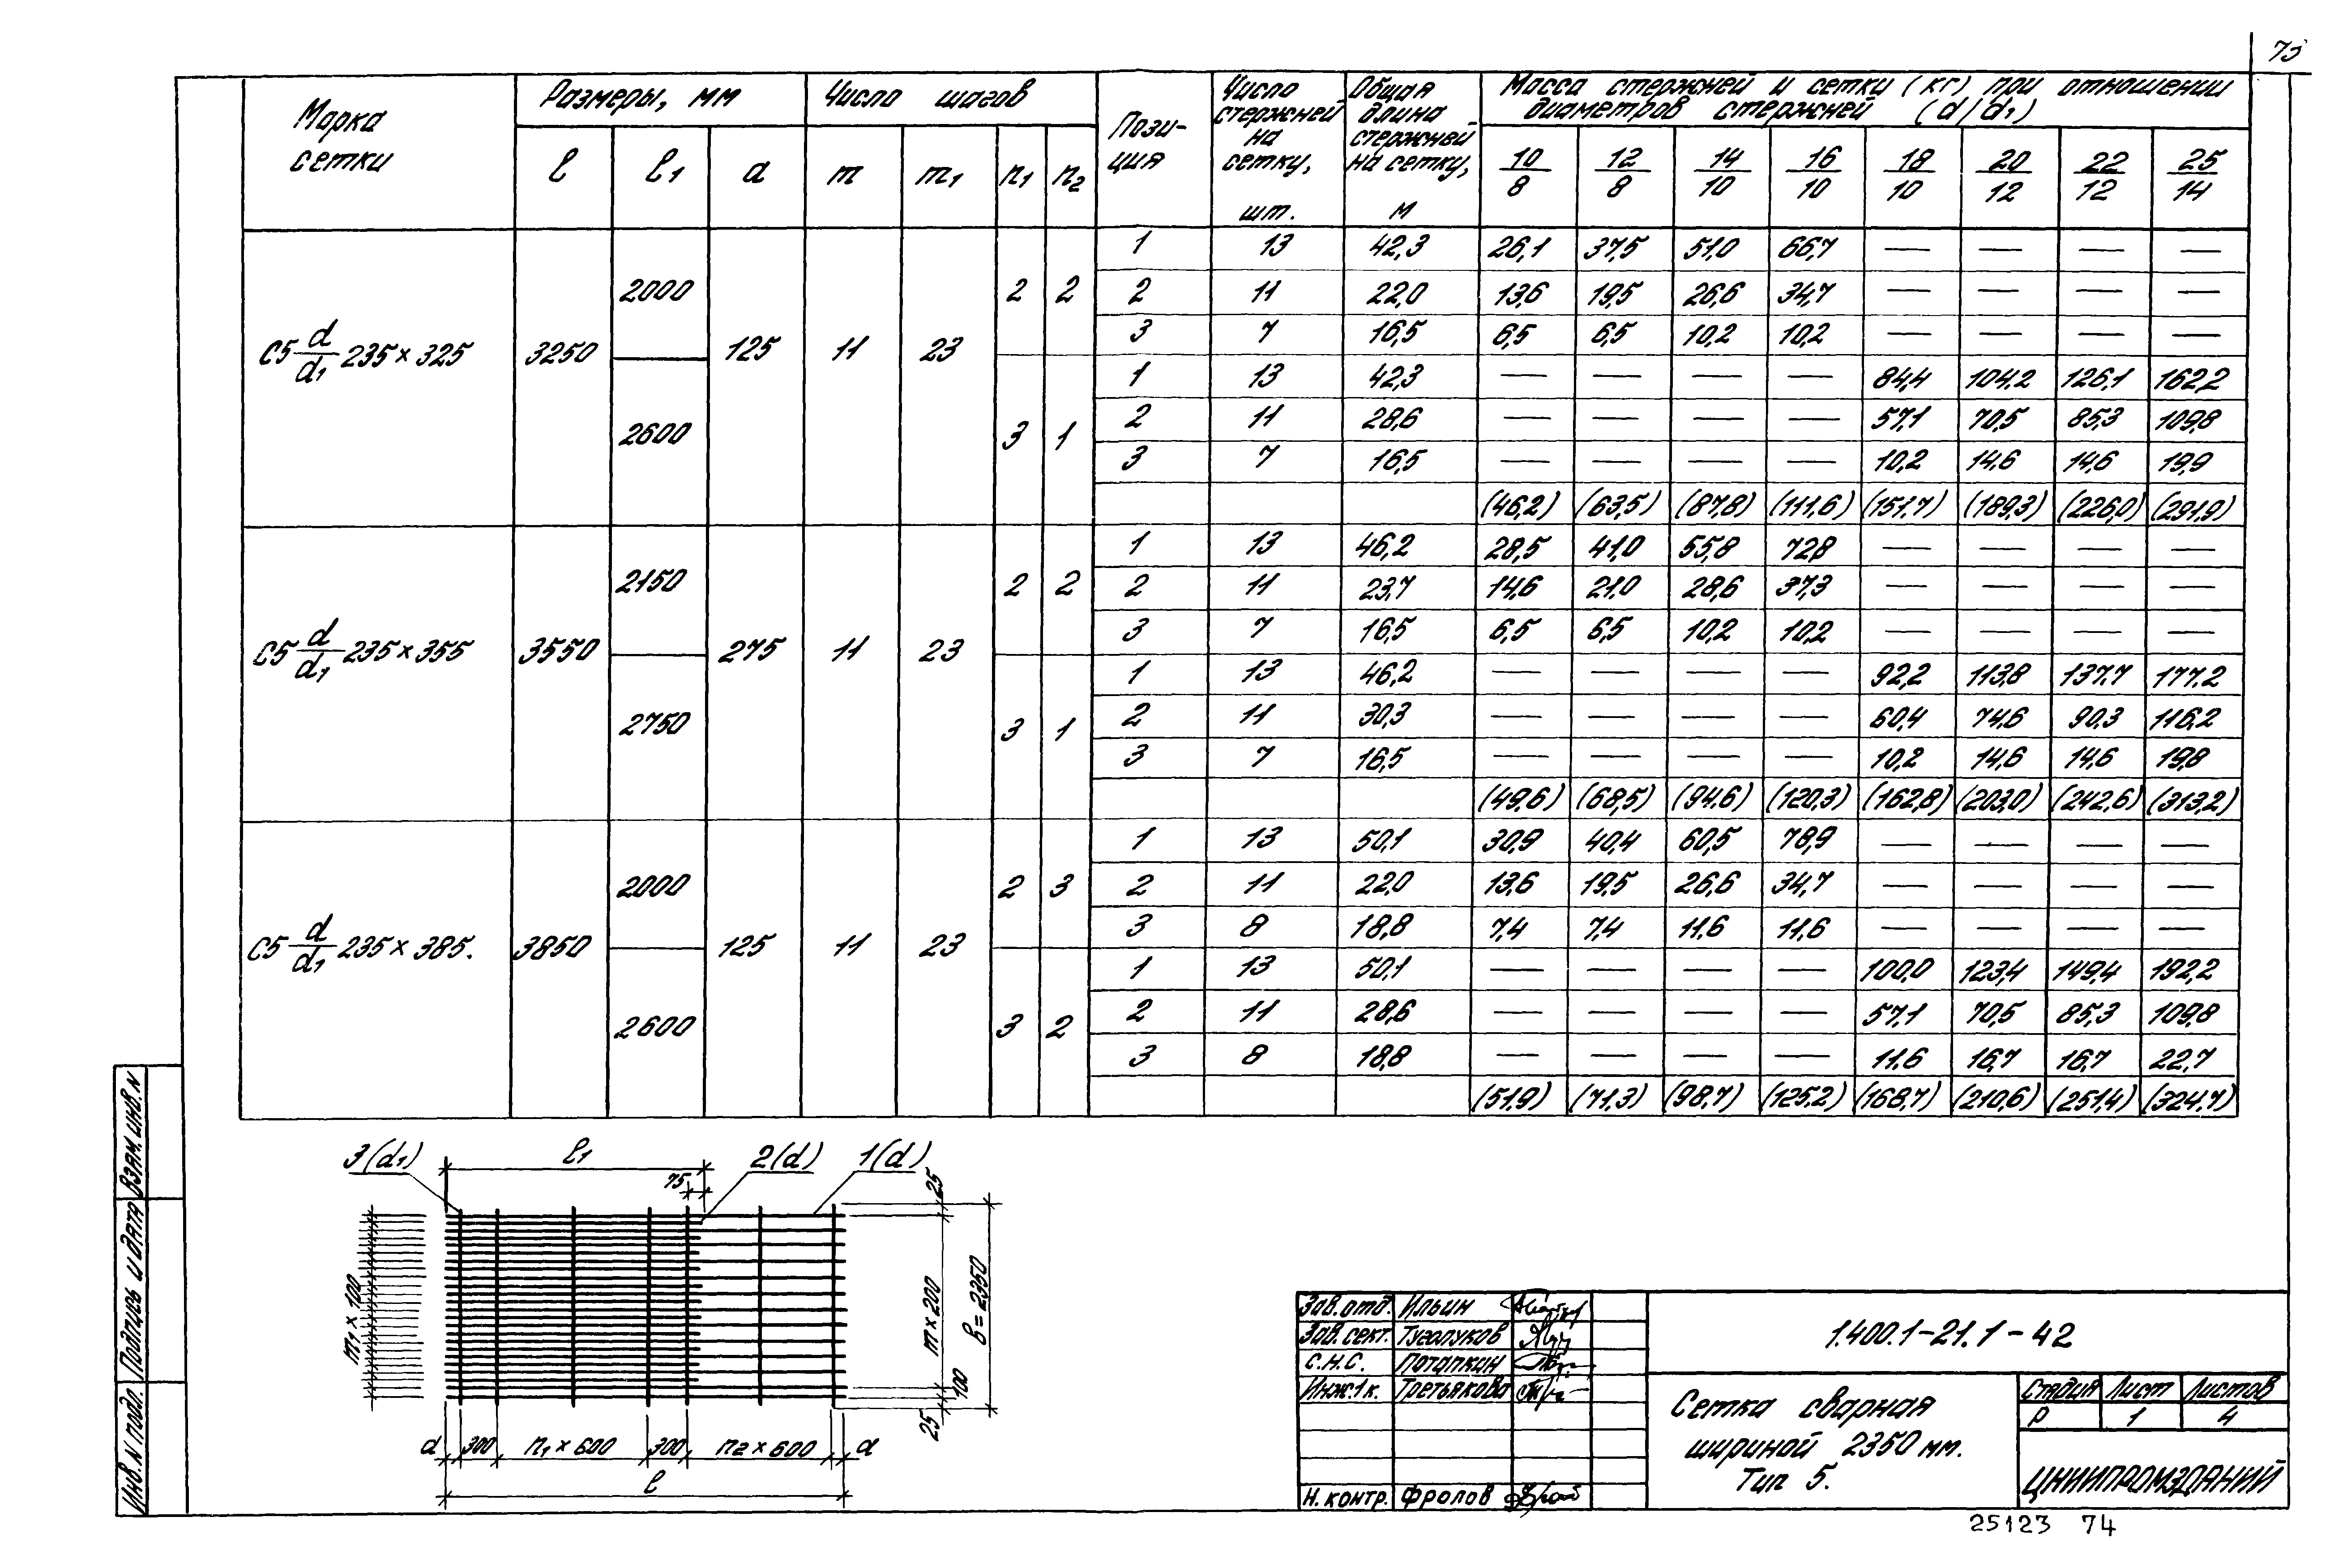 75
Марка сетки | Размеры, мм | Число шагов | Пози-ция | Число стержней на сетку, шт. | Общая длина стержней на сетку, м | Масса стержней и сетки (кг) при отношении диаметров стержней (d/d1)
l | l1 | a | m | m1 | n1 | n2 | 10/8 | 12/8 | 14/10 | 16/10 | 18/10 | 20/12 | 22/12 | 25/14
С5 d/d1 235×325 | 3250 | 2000 | 125 | 11 | 23 | 2 | 2
1 | 13 | 42,3 | 26,1 | 37,5 | 51,0 | 66,7 | — | — | — | —
2 | 11 | 22,0 | 13,6 | 19,5 | 26,6 | 34,7 | — | — | — | —
3 | 7 | 16,5 | 6,5 | 6,5 | 10,2 | 10,2 | — | — | — | —
2600 | 3 | 1
1 | 13 | 42,3 | — | — | — | — | 84,4 | 104,2 | 126,1 | 162,2
2 | 11 | 28,6 | — | — | — | — | 57,1 | 70,5 | 85,3 | 109,8
3 | 7 | 16,5 | — | — | — | — | 10,2 | 14,6 | 14,6 | 19,9
(46,2) | (63,5) | (87,8) | (111,6) | (151,7) | (189,3) | (226,0) | (291,9)
С5 d/d1 235×355 | 3550 | 2150 | 275 | 11 | 23 | 2 | 2
1 | 13 | 46,2 | 28,5 | 41,0 | 55,8 | 72,8 | — | — | — | —
2 | 11 | 23,7 | 14,6 | 21,0 | 28,6 | 37,3 | — | — | — | —
3 | 7 | 16,5 | 6,5 | 6,5 | 10,2 | 10,2 | — | — | — | —
2750 | 3 | 1
1 | 13 | 46,2 | — | — | — | — | 92,2 | 113,8 | 137,7 | 177,2
2 | 11 | 30,3 | — | — | — | — | 60,4 | 74,6 | 90,3 | 116,2
3 | 7 | 16,5 | — | — | — | — | 10,2 | 14,6 | 14,6 | 19,8
(49,6) | (68,5) | (94,6) | (120,3) | (162,8) | (203,0) | (242,6) | (313,2)
С5 d/d1 235×385. | 3850 | 2000 | 125 | 11 | 23 | 2 | 3
1 | 13 | 50,1 | 30,9 | 40,4 | 60,5 | 78,9 | — | — | — | —
2 | 11 | 22,0 | 13,6 | 19,5 | 26,6 | 34,7 | — | — | — | —
3 | 8 | 18,8 | 7,4 | 7,4 | 11,6 | 11,6 | — | — | — | —
2600 | 3 | 2
1 | 13 | 50,1 | — | — | — | — | 100,0 | 123,4 | 149,4 | 192,2
2 | 11 | 28,6 | — | — | — | — | 57,1 | 70,5 | 85,3 | 109,8
3 | 8 | 18,8 | — | — | — | — | 11,6 | 16,7 | 16,7 | 22,7
(51,9) | (71,3) | (98,7) | (125,2) | (168,7) | (210,6) | (251,4) | (324,7)
3(d1) l1 2(d) 1(d)
75
25
m1×100
m×200
в=2350
100
25
a 300 n1×600 300 n2×600 a
l
Инв.N подл. Подпись и дата Взам.инв.N
Зав.отд. Ильин
Зав.сект. Туголуков
С.Н.С. Потапкин
Инж.1к. Третьякова
Н.контр. Фролов
1.400.1-21.1-42
Сетка сварная
шириной 2350 мм.
Тип 5.
Стадия Лист Листов
Р 1 4
ЦНИИПРОМЗДАНИЙ
25123 74